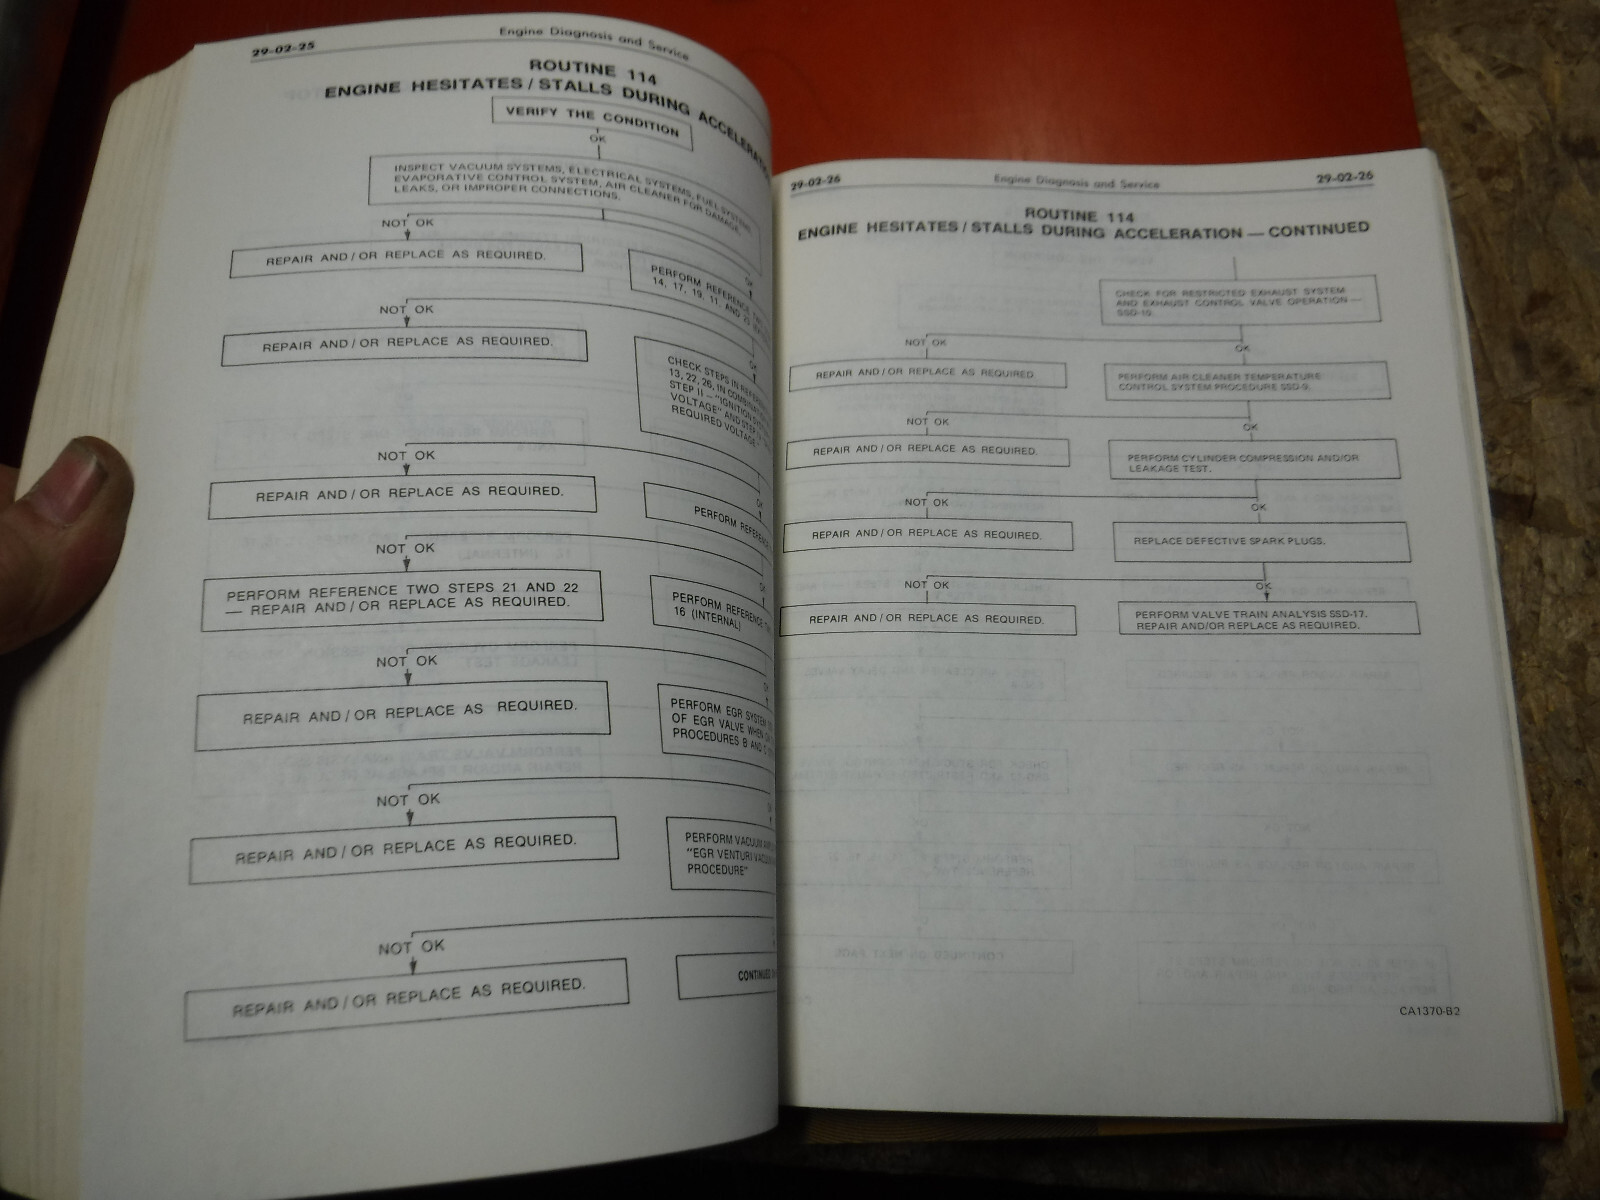 29-02-25
Engine Diagnosis and Service
ROUTINE 114
ENGINE HESITATES / STALLS DURING
VERIFY THE CONDITION
OK
INSPECT VACUUM SYSTEMS, ELECTRICAL SYSTEMS, FUEL SYSTEMS,
EVAPORATIVE CONTROL SYSTEM, AIR CLEANER FOR DAMAGE,
LEAKS, OR IMPROPER CONNECTIONS.
NOT OK
OK
REPAIR AND / OR REPLACE AS REQUIRED.
PERFORM REFERENCE
14, 17, 19, 11, AND 23
NOT OK
OK
REPAIR AND / OR REPLACE AS REQUIRED.
CHECK STEPS IN
13, 22, 26, IN COMBINATION
STEP II – "IGNITION
VOLTAGE" AND STEP
REQUIRED VOLTAGE"
NOT OK
OK
REPAIR AND / OR REPLACE AS REQUIRED.
PERFORM REFERENCE
NOT OK
OK
PERFORM REFERENCE TWO STEPS 21 AND 22
— REPAIR AND / OR REPLACE AS REQUIRED.
PERFORM REFERENCE
16 (INTERNAL)
NOT OK
REPAIR AND / OR REPLACE AS REQUIRED.
PERFORM EGR SYSTEM
OF EGR VALVE WHEN
PROCEDURES B AND C
NOT OK
REPAIR AND / OR REPLACE AS REQUIRED.
PERFORM VACUUM
"EGR VENTURI
PROCEDURE"
NOT OK
REPAIR AND / OR REPLACE AS REQUIRED.
CONTINUED
29-02-26
Engine Diagnosis and Service
29-02-26
ROUTINE 114
ENGINE HESITATES / STALLS DURING ACCELERATION — CONTINUED
CHECK FOR RESTRICTED EXHAUST SYSTEM
AND EXHAUST CONTROL VALVE OPERATION —
SSD-19.
NOT OK
OK
REPAIR AND / OR REPLACE AS REQUIRED.
PERFORM AIR CLEANER TEMPERATURE
CONTROL SYSTEM PROCEDURE SSD-9.
NOT OK
OK
REPAIR AND / OR REPLACE AS REQUIRED.
PERFORM CYLINDER COMPRESSION AND/OR
LEAKAGE TEST.
NOT OK
OK
REPAIR AND / OR REPLACE AS REQUIRED.
REPLACE DEFECTIVE SPARK PLUGS.
NOT OK
OK
REPAIR AND / OR REPLACE AS REQUIRED.
PERFORM VALVE TRAIN ANALYSIS SSD-17.
REPAIR AND/OR REPLACE AS REQUIRED.
CA1370-B2